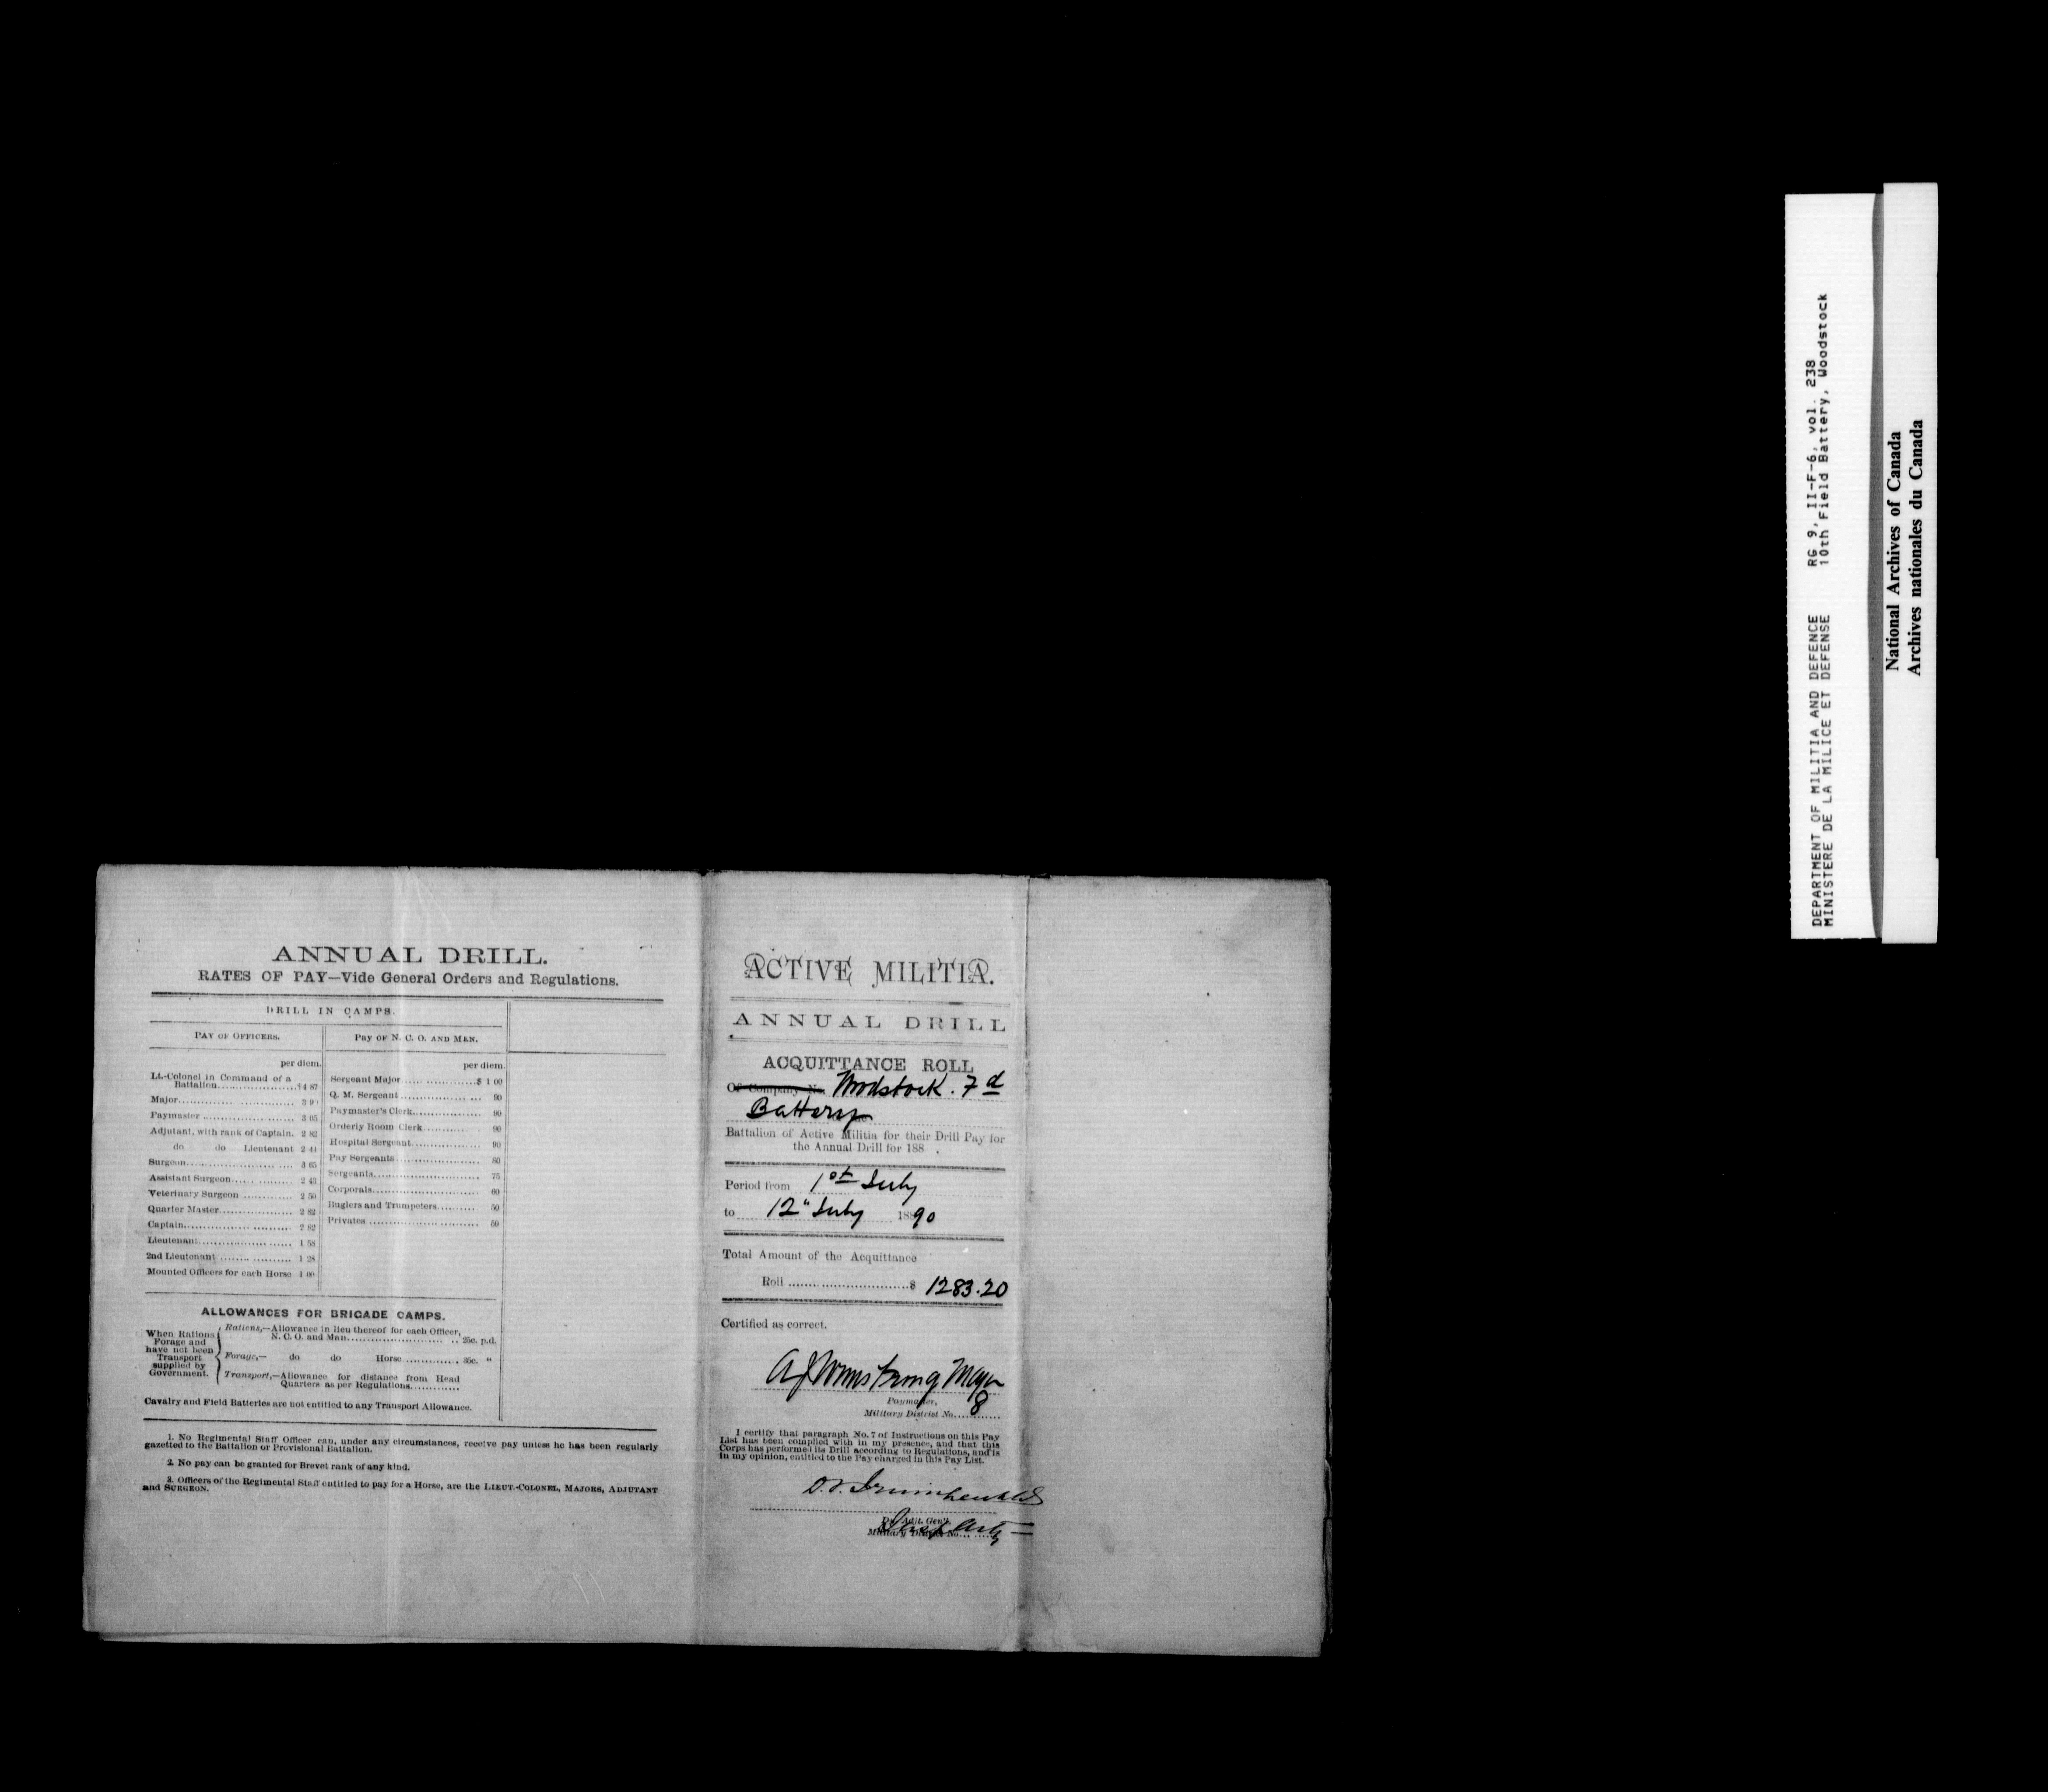 ANNUAL DRILL.
RATES OF PAY—Vide General Orders and Regulations.
DRILL IN CAMPS.
PAY OF OFFICERS.
per diem.
Lt.-Colonel in Command of a
Battalion........................ $4 87
Major.............................. 3 90
Paymaster ........................ 3 05
Adjutant, with rank of Captain. 2 82
do do Lieutenant 2 44
Surgeon........................... 3 65
Assistant Surgeon................ 2 43
Veterinary Surgeon ............. 2 50
Quarter Master................... 2 82
Captain........................... 2 82
Lieutenant........................ 1 58
2nd Lieutenant .................. 1 28
Mounted Officers for each Horse 1 00
PAY OF N. C. O. AND MEN.
per diem.
Sergeant Major................... $ 1 00
Q. M. Sergeant................... 90
Paymaster's Clerk................ 90
Orderly Room Clerk............... 90
Hospital Sergeant................ 90
Pay Sergeants.................... 80
Sergeants......................... 75
Corporals......................... 60
Buglers and Trumpeters.......... 50
Privates .......................... 50
ALLOWANCES FOR BRIGADE CAMPS.
When Rations
Forage and
have not been
Transport
supplied by
Government.
Rations,—Allowance in lieu thereof for each Officer,
N. C. O. and Man........................... 25c. p.d.
Forage,— do do Horse ............. 35c. "
Transport,—Allowance for distance from Head
Quarters as per Regulations............
Cavalry and Field Batteries are not entitled to any Transport Allowance.
1. No Regimental Staff Officer can, under any circumstances, receive pay unless he has been regularly
gazetted to the Battalion or Provisional Battalion.
2. No pay can be granted for Brevet rank of any kind.
3. Officers of the Regimental Staff entitled to pay for a Horse, are the LIEUT.-COLONEL, MAJORS, ADJUTANT
and SURGEON.
ACTIVE MILITIA.
ANNUAL DRILL
ACQUITTANCE ROLL
Of Company No. Woodstock. 7d
Battery
Battalion of Active Militia for their Drill Pay for
the Annual Drill for 188 .
Period from 1st July
to 12" July 1890
Total Amount of the Acquittance
Roll ..............................$ 1283.20
Certified as correct.
A J Armstrong Major
Paymaster,
Military District No. 8
I certify that paragraph No. 7 of Instructions on this Pay
List has been complied with in my presence, and that this
Corps has performed its Drill according to Regulations, and is
in my opinion, entitled to the Pay charged in this Pay List.
Dy. Adjt. Gen'l.
Military District No.
DEPARTMENT OF MILITIA AND DEFENCE RG 9, II-F-6, vol. 238
MINISTERE DE LA MILICE ET DEFENSE 10th Field Battery, Woodstock
National Archives of Canada
Archives nationales du Canada